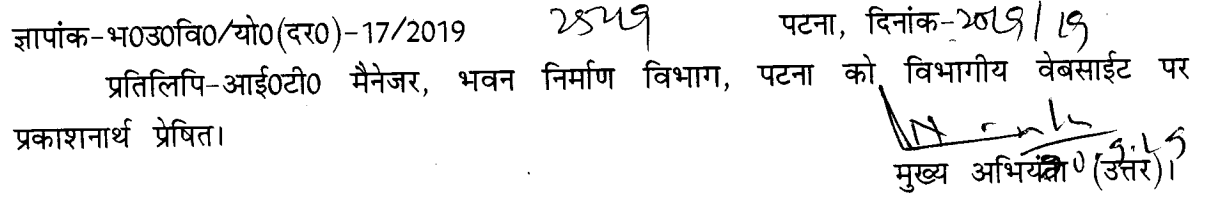 ज्ञापांक-भ0उ0वि0/यो0(दर0)-17/2019 पटना, दिनांक-
प्रतिलिपि-आई0टी0 मैनेजर, भवन निर्माण विभाग, पटना को विभागीय वेबसाईट पर
प्रकाशनार्थ प्रेषित।
मुख्य अभियंता (उत्तर)।